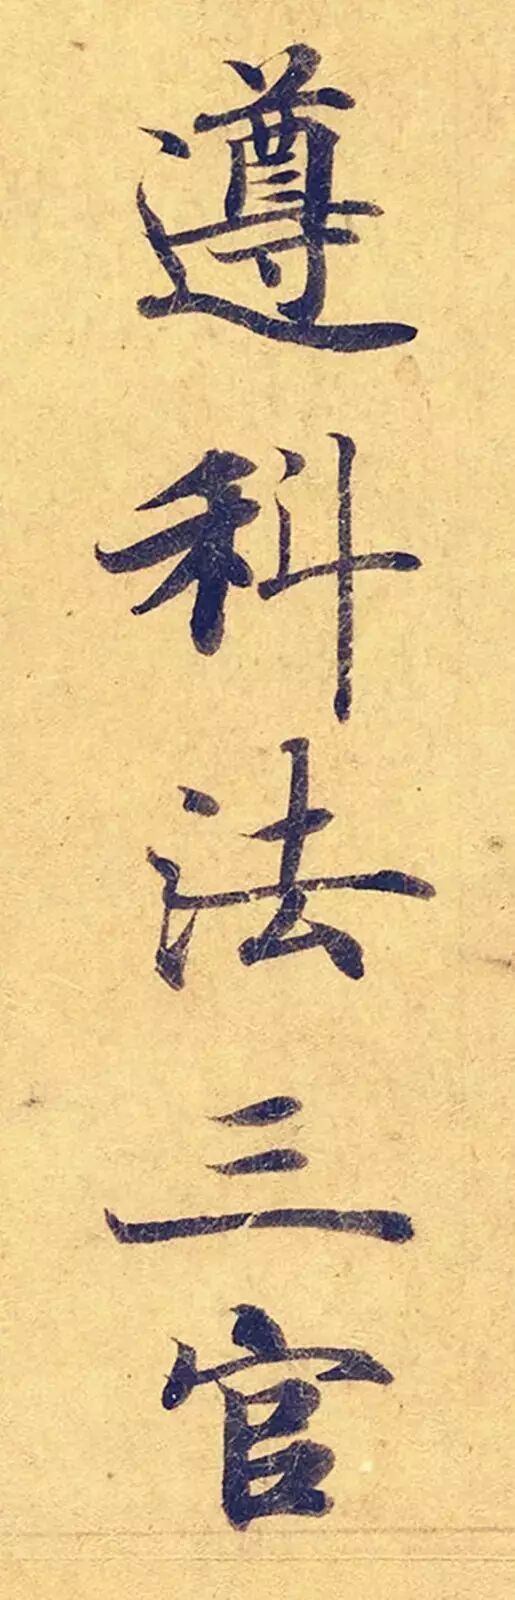 遵科法三官